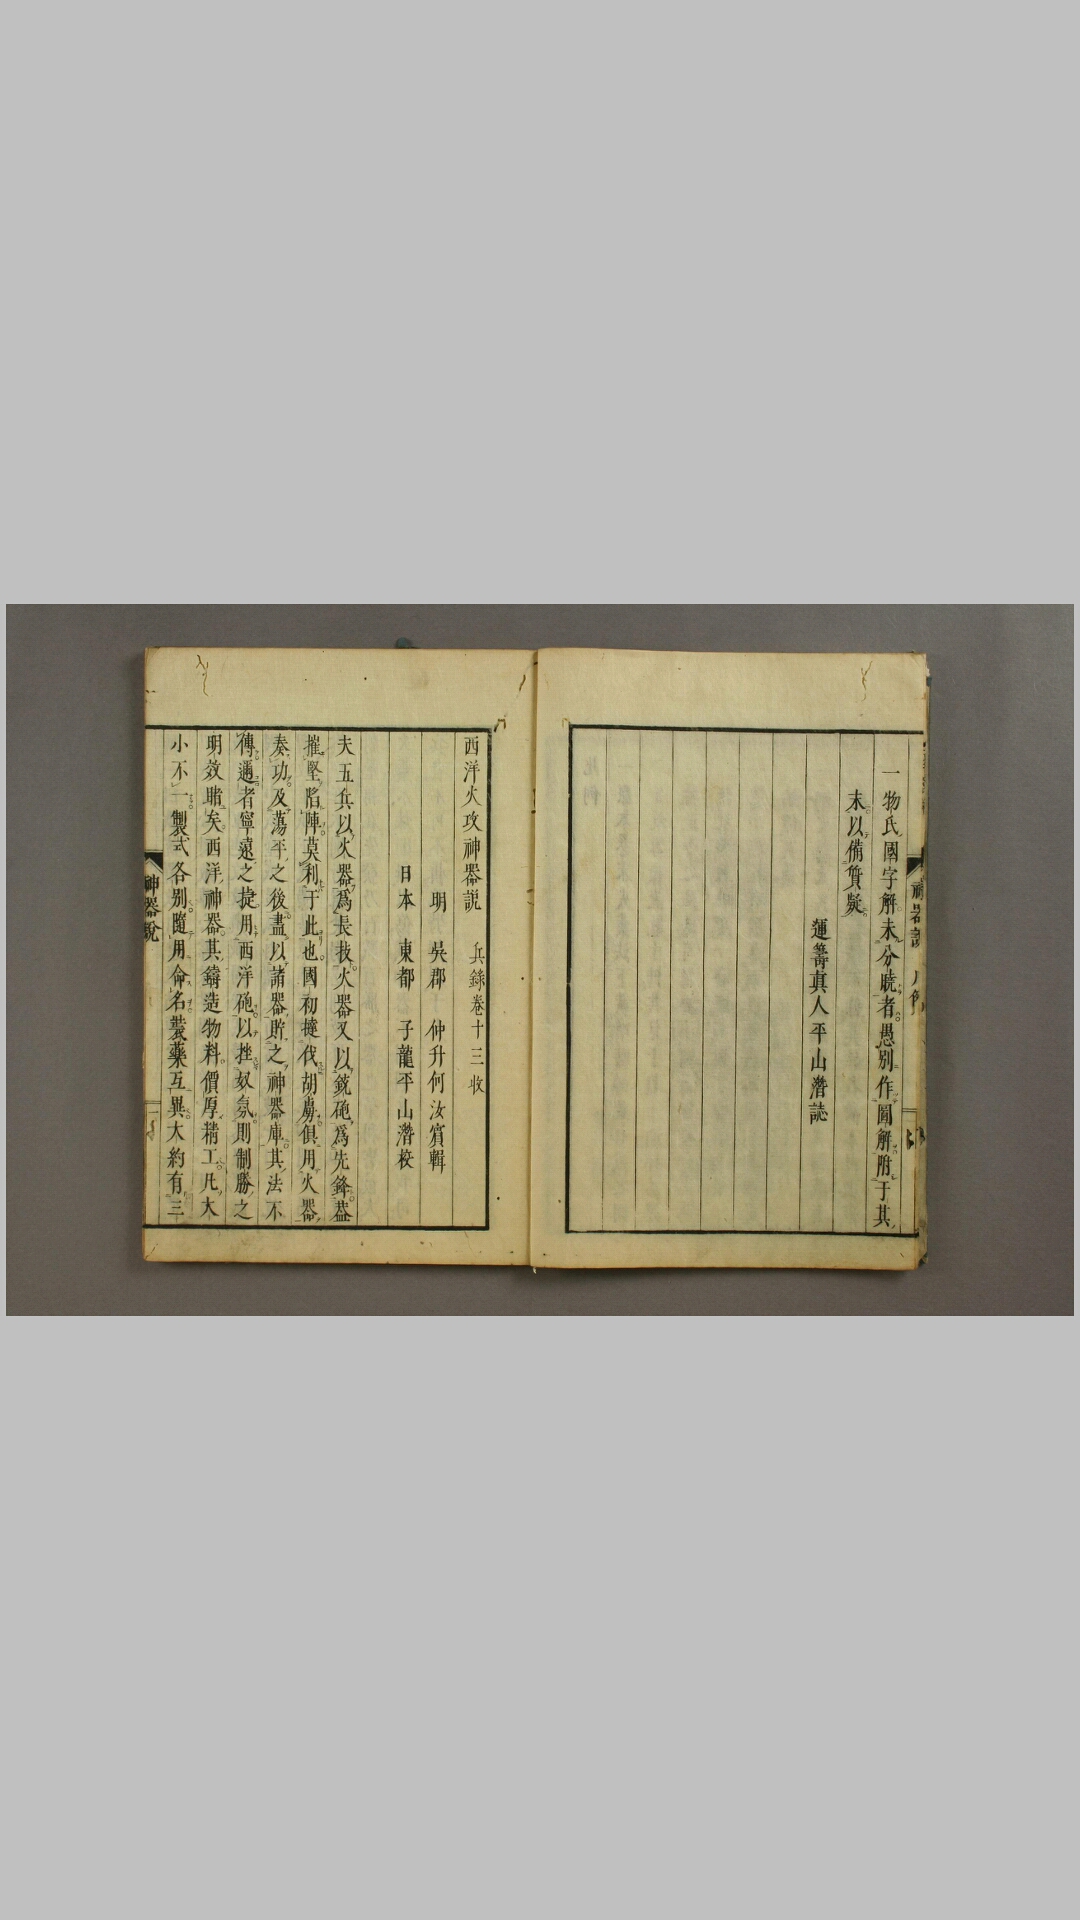 一物氏國字解未分曉者愚別作圖解附于其
末以備質疑
運籌真人平山潛誌
西洋火攻神器説 兵錄卷十三收
明 吳郡 仲升何汝賓輯
日本 東都 子龍平山潛校
夫五兵以火器爲長技火器又以銃砲爲先鋒蓋
摧堅陷陣莫利于此也國初撻伐胡虜俱用火器
奏功及蕩平之後盡以諸器貯之神器庫其法不
傳邇者寧遠之捷用西洋砲以挫奴氛則制勝之
明效睹矣西洋神器其鑄造物料價厚精工凡大
小不一製式各別隨用命名裝藥互異大約有三
神器説